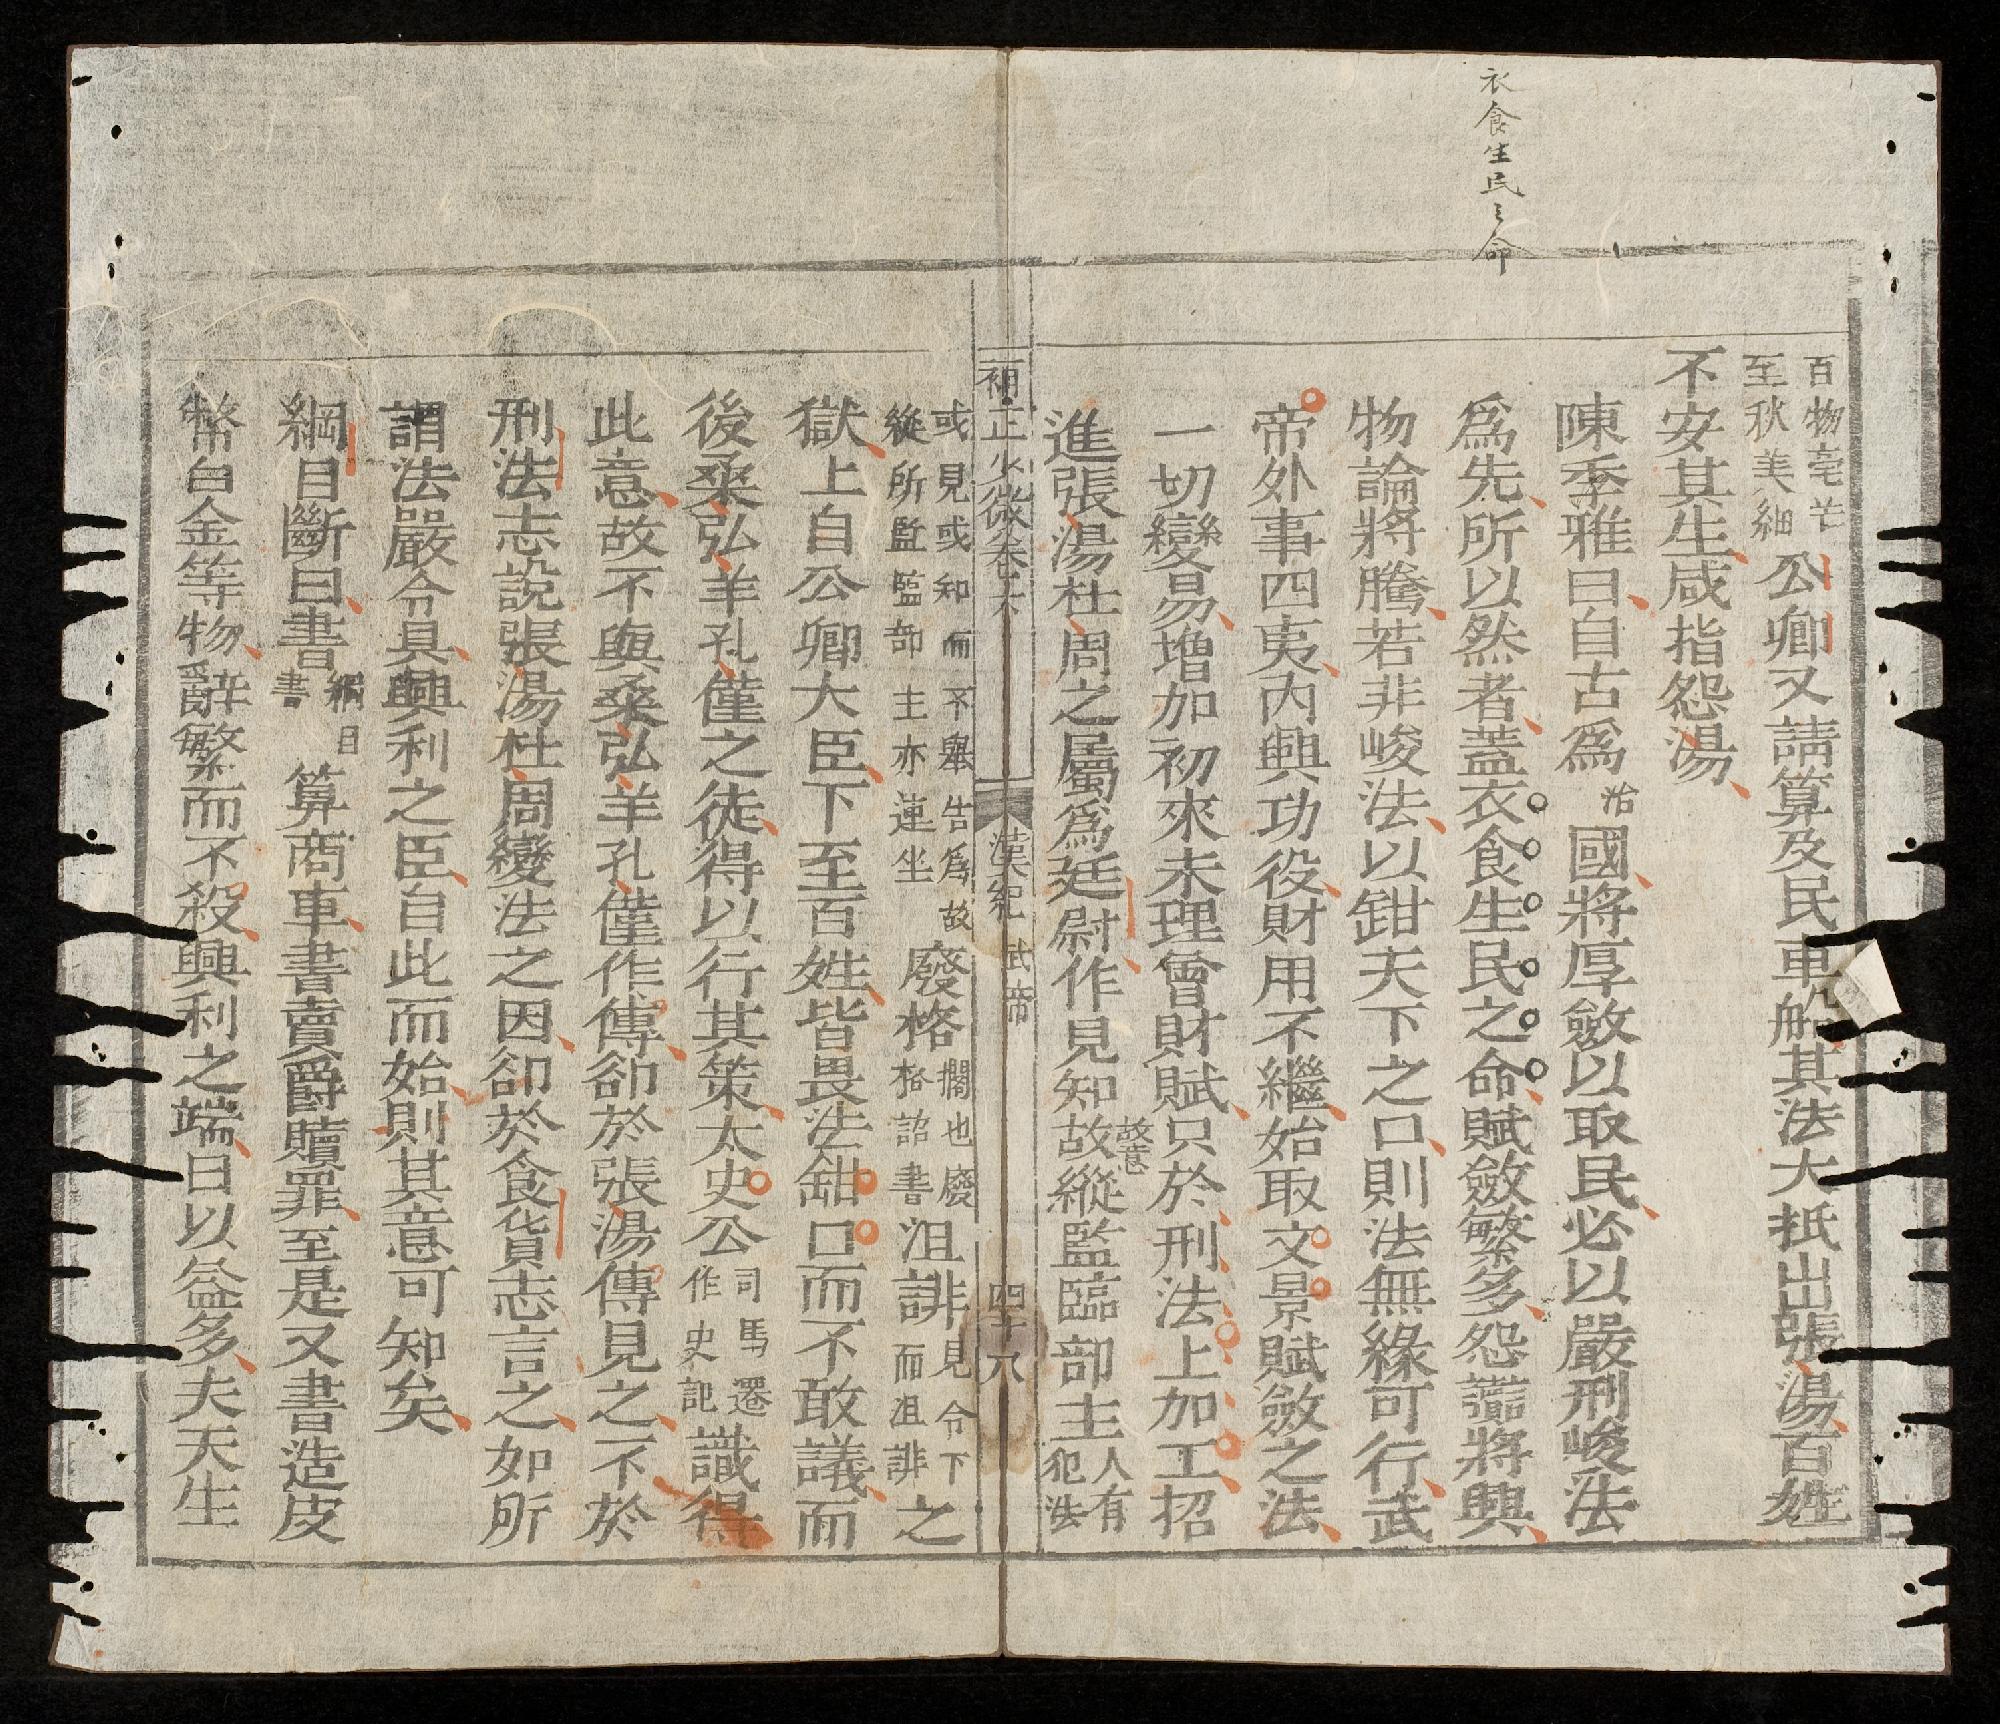 衣食生民之命
百物毫芒至秋美細公卿又請算及民車船其法大抵出張湯百姓
不安其生咸指怨湯
陳季雅曰自古爲治國將厚斂以取民必以嚴刑峻法
爲先所以然者蓋衣食生民之命賦斂繁多怨讟將興
物論將騰若非峻法以鉗天下之口則法無緣可行武
帝外事四夷內興功役財用不繼始取文景賦斂之法
一切變易增加初來未理會財賦只於刑法上加工招
進張湯杜周之屬爲廷尉作見知故故意縱監臨部主人有犯法
補正少微卷六 漢紀 武帝 四十八
或見或知而不舉告爲故縱所監臨部主亦連坐廢格擱也廢格詔書沮誹見令下而沮誹之
獄上自公卿大臣下至百姓皆畏法鉗口而不敢議而
後桑弘羊孔僅之徒得以行其策太史公司馬遷作史記識得
此意故不與桑弘羊孔僅作傳卻於張湯傳見之不於
刑法志說張湯杜周變法之因卻於食貨志言之如所
謂法嚴令具興利之臣自此而始則其意可知矣
綱目斷曰書綱目書算商車書賣爵贖罪至是又書造皮
幣白金等物辭繁而不殺興利之端日以益多夫天生